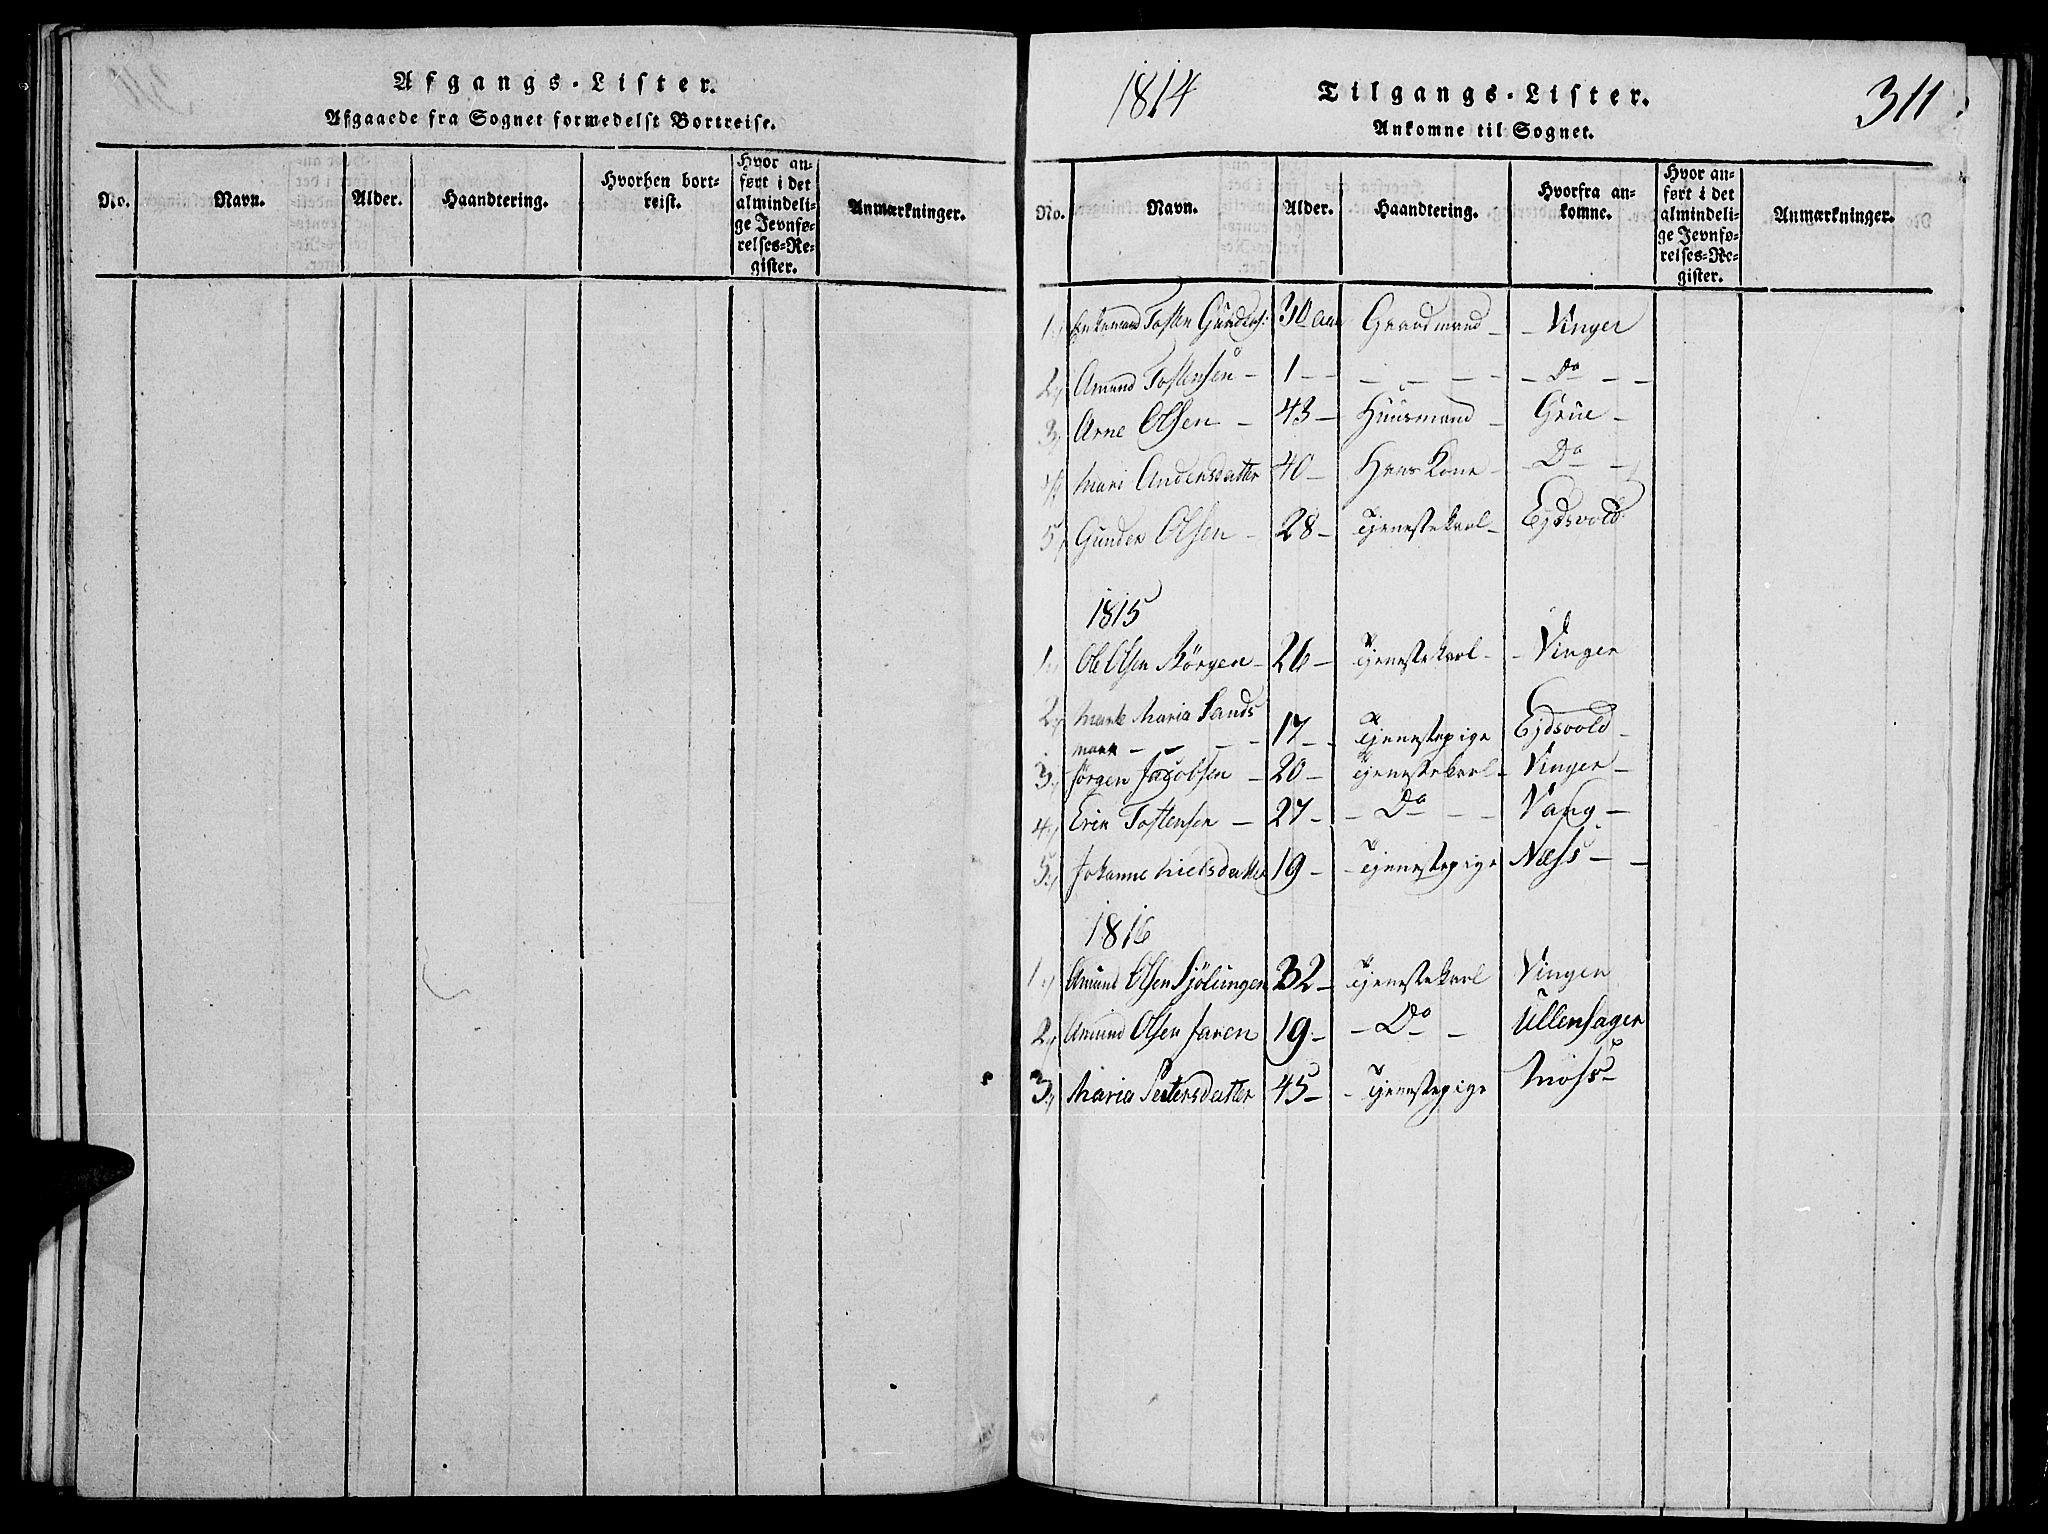 Afgangs-Lister.
Afgaaede fra Sognet formedelst Bortreise.
No.
Navn.
Alder.
Haandtering.
Hvorhen bort-
reist.
Hvor an-
ført i det
almindeli-
ge Jevnfø-
relses-Re-
gister.
Anmærkninger.
1814
Tilgangs-Lister.
311
Ankomne til Sognet.
No.
Navn.
Alder.
Haandtering.
Hvorfra an-
komne.
Hvor an-
ført i det
almindeli-
ge Jevnfø-
relses-Re-
gister.
Anmærkninger.
1) Enkemand Tosten Gunders: 30 aar Gaardmand - - Vinger
2) Amund Tostensen - 1 - - - - - - - Do - -
3) Arne Olsen - 43 - Huusmand - Grue -
4) Mari Andersdatter 40 - Hans Kone - - Do -
5) Gunder Olsen - 28 - Tjenestekarl - Ejdsvold
1815
1) Ole Olsen Börgen - 26 - Tjenestekarl - - Vinger
2) Marte Maria Sands
mark - - - - 17 - Tjenestepige Ejdsvold -
3) Jörgen Jacobsen - 20 - Tjenestekarl - Vinger -
4) Erik Tostensen - 27 - - Do - - Vang -
5) Johanne Nielsdatter 19 - - Tjenestepige Næss - -
1816
1) Amund Olsen Sjölungen 32 - Tjenestekarl Vinger
2) Amund Olsen Jaren 19 - - Do - Ullensager
3) Maria Petersdatter 45 - - Tjenestepige Moss -